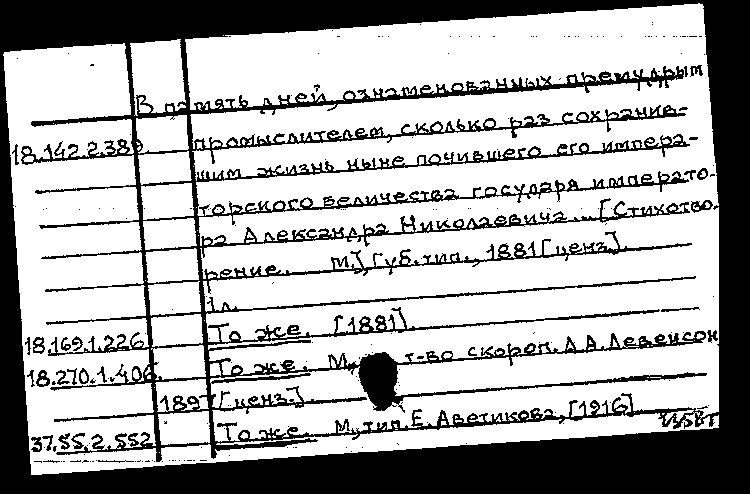 В память дней, ознаменованных премудрым
18.142.2.389. промыслителем, сколько раз сохранив-
шим жизнь ныне почившего его импера-
торского величества государя императо-
ра Александра Николаевича... [Стихотво-
рение. М.], Губ. тип., 1881 [ценз].
1 л.
18.169.1.226 То же. [1881].
18.270.1.406. То же. М., т-во скороп. А.А. Левенсон
1897 [ценз.].
37.55.2.552 То же. М., тип. Е. Аветикова, [1916]